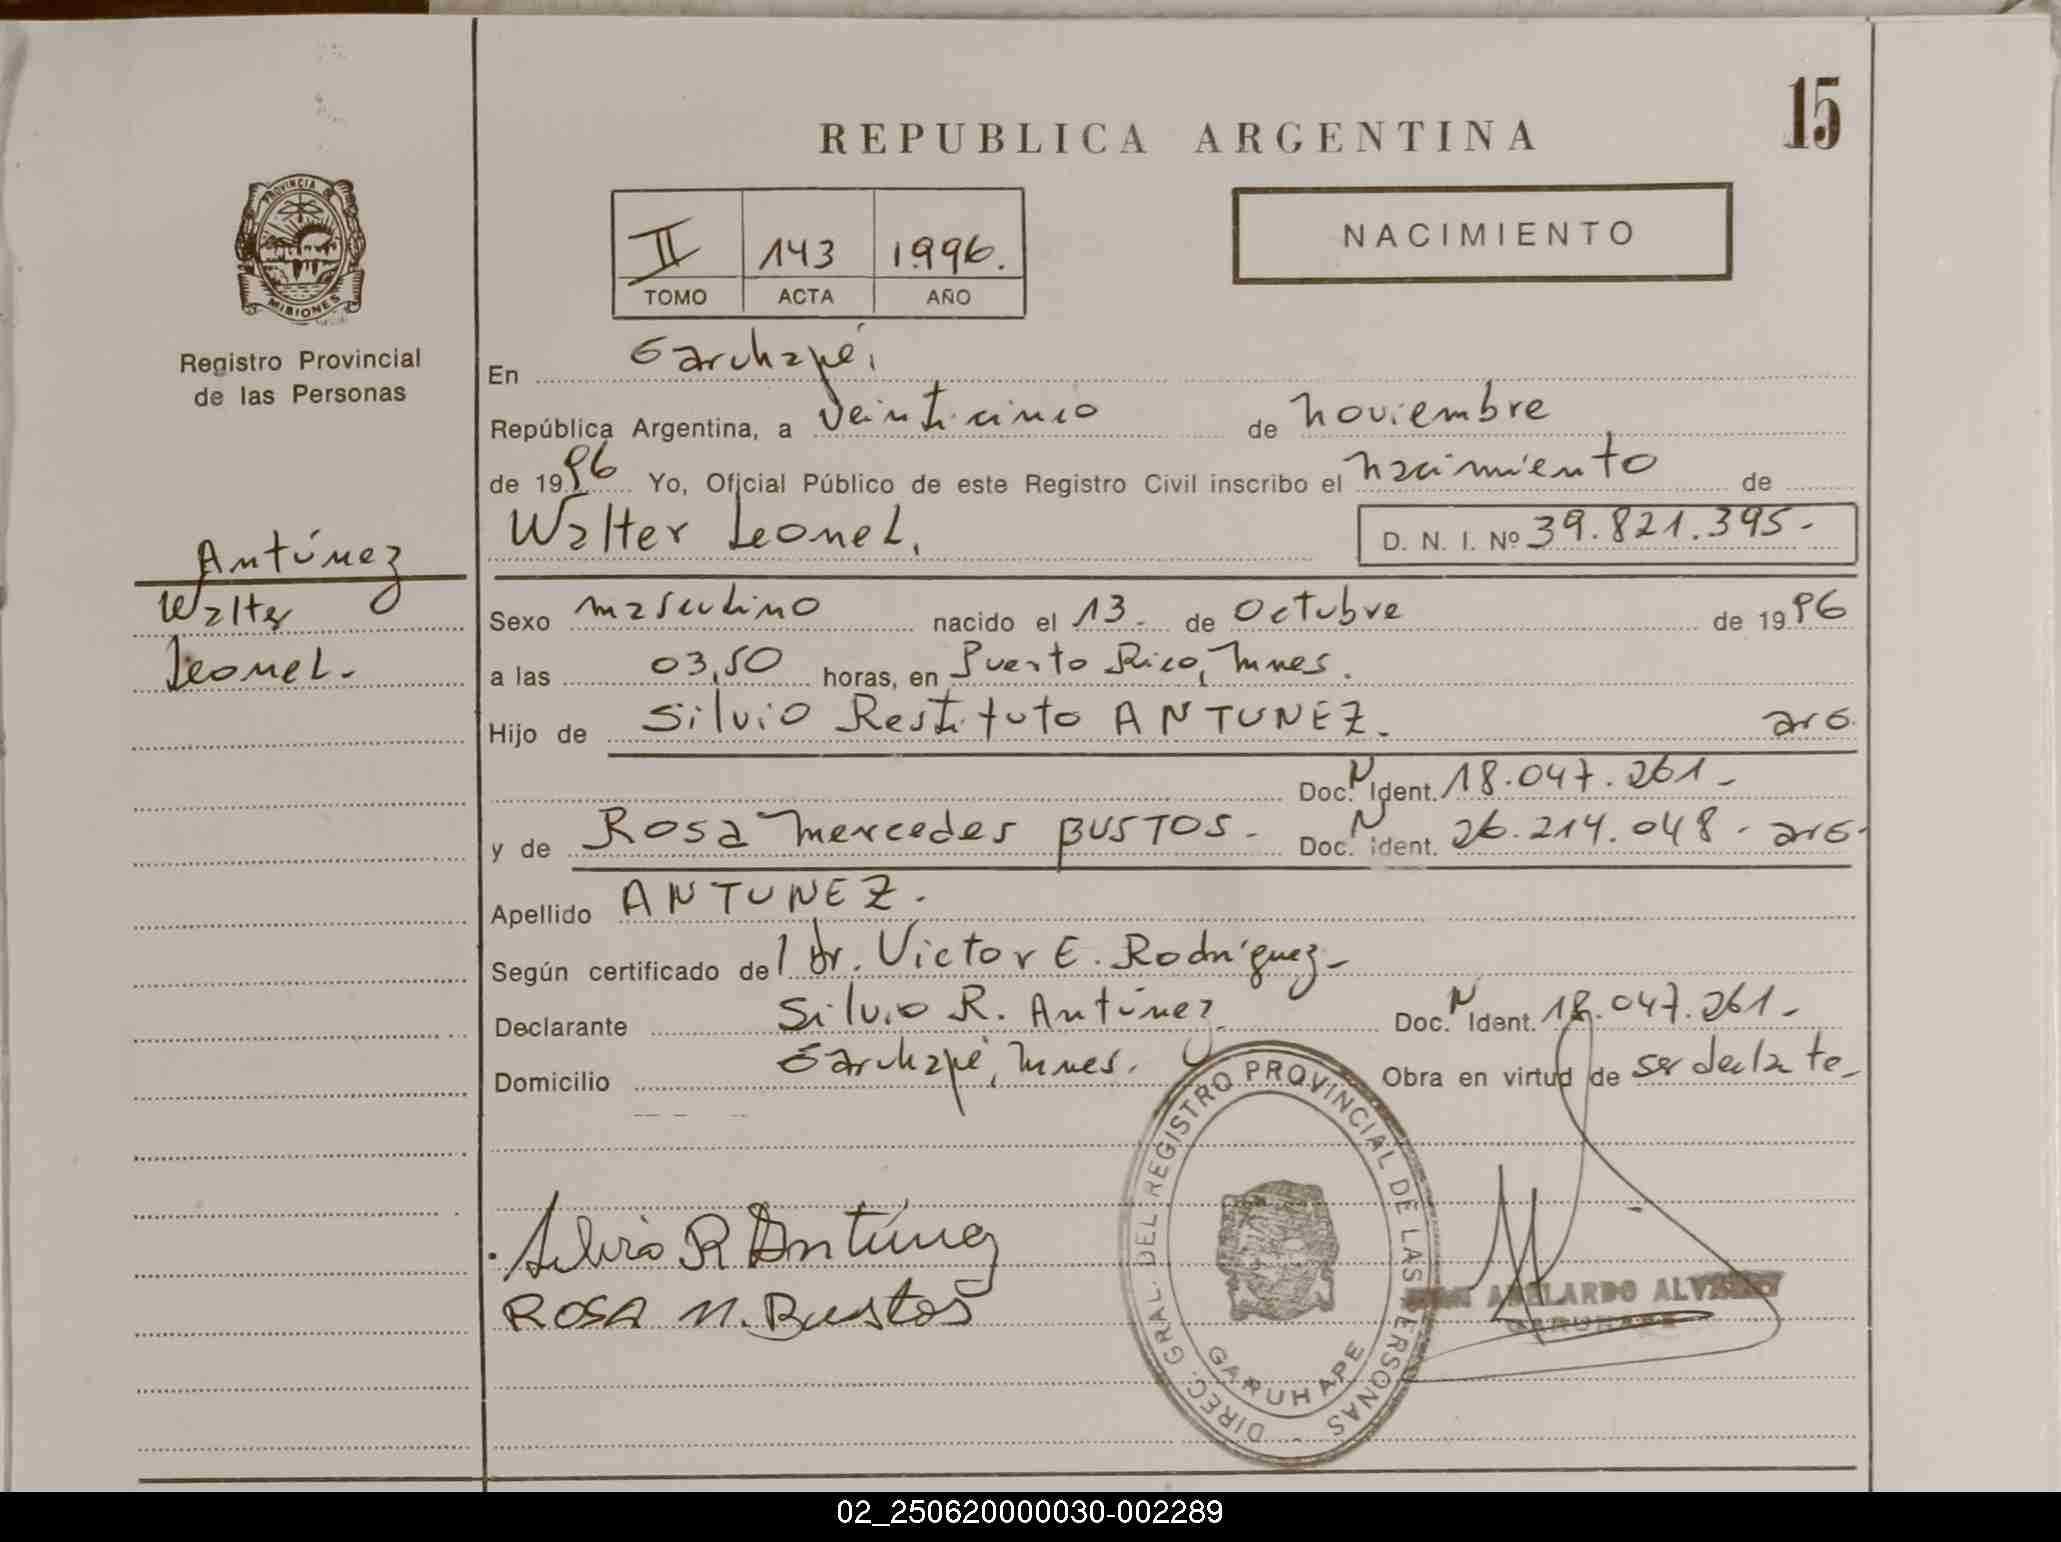 15
REPUBLICA ARGENTINA
PROVINCIA DE
MISIONES
II 143 1996.
TOMO ACTA AÑO
NACIMIENTO
Registro Provincial
de las Personas
En Garuhapé,
República Argentina, a veinticinco de noviembre
de 1996 Yo, Oficial Público de este Registro Civil inscribo el nacimiento de
Walter Leonel. D. N. I. Nº 39.821.395-
Antúnez
Walter
Leonel-
Sexo masculino nacido el 13 de Octubre de 1996
a las 03,50 horas, en Puerto Rico, Mnes.
Hijo de Silvio Restituto ANTUNEZ. arg.
Doc. N Ident. 18.047.261-
y de Rosa Mercedes BUSTOS- Doc. N Ident. 26.214.048- arg.
Apellido ANTUNEZ.
Según certificado de l Dr. Victor E. Rodríguez-
Declarante Silvio R. Antúnez Doc. N Ident. 18.047.261-
Domicilio Garuhapé, Mnes. Obra en virtud de ser decla te-
Silvio R Antúnez
ROSA M. Bustos
DIREC. GRAL. DEL REGISTRO PROVINCIAL DE LAS PERSONAS -
GARUHAPE
ABELARDO
GARUHAPE
02_250620000030-002289